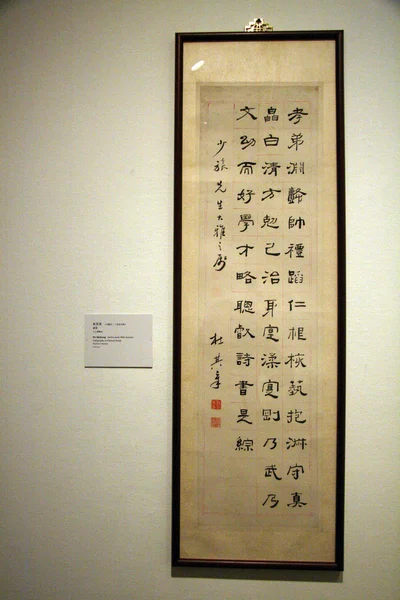 孝弟淵懿帥禮蹈仁根核蓺抱淑守真
皛白清方剋己治身寔渘寔剛乃武乃
文幼而好學才略聰叡詩書是綜
少旅先生大雅之屬
杜其章